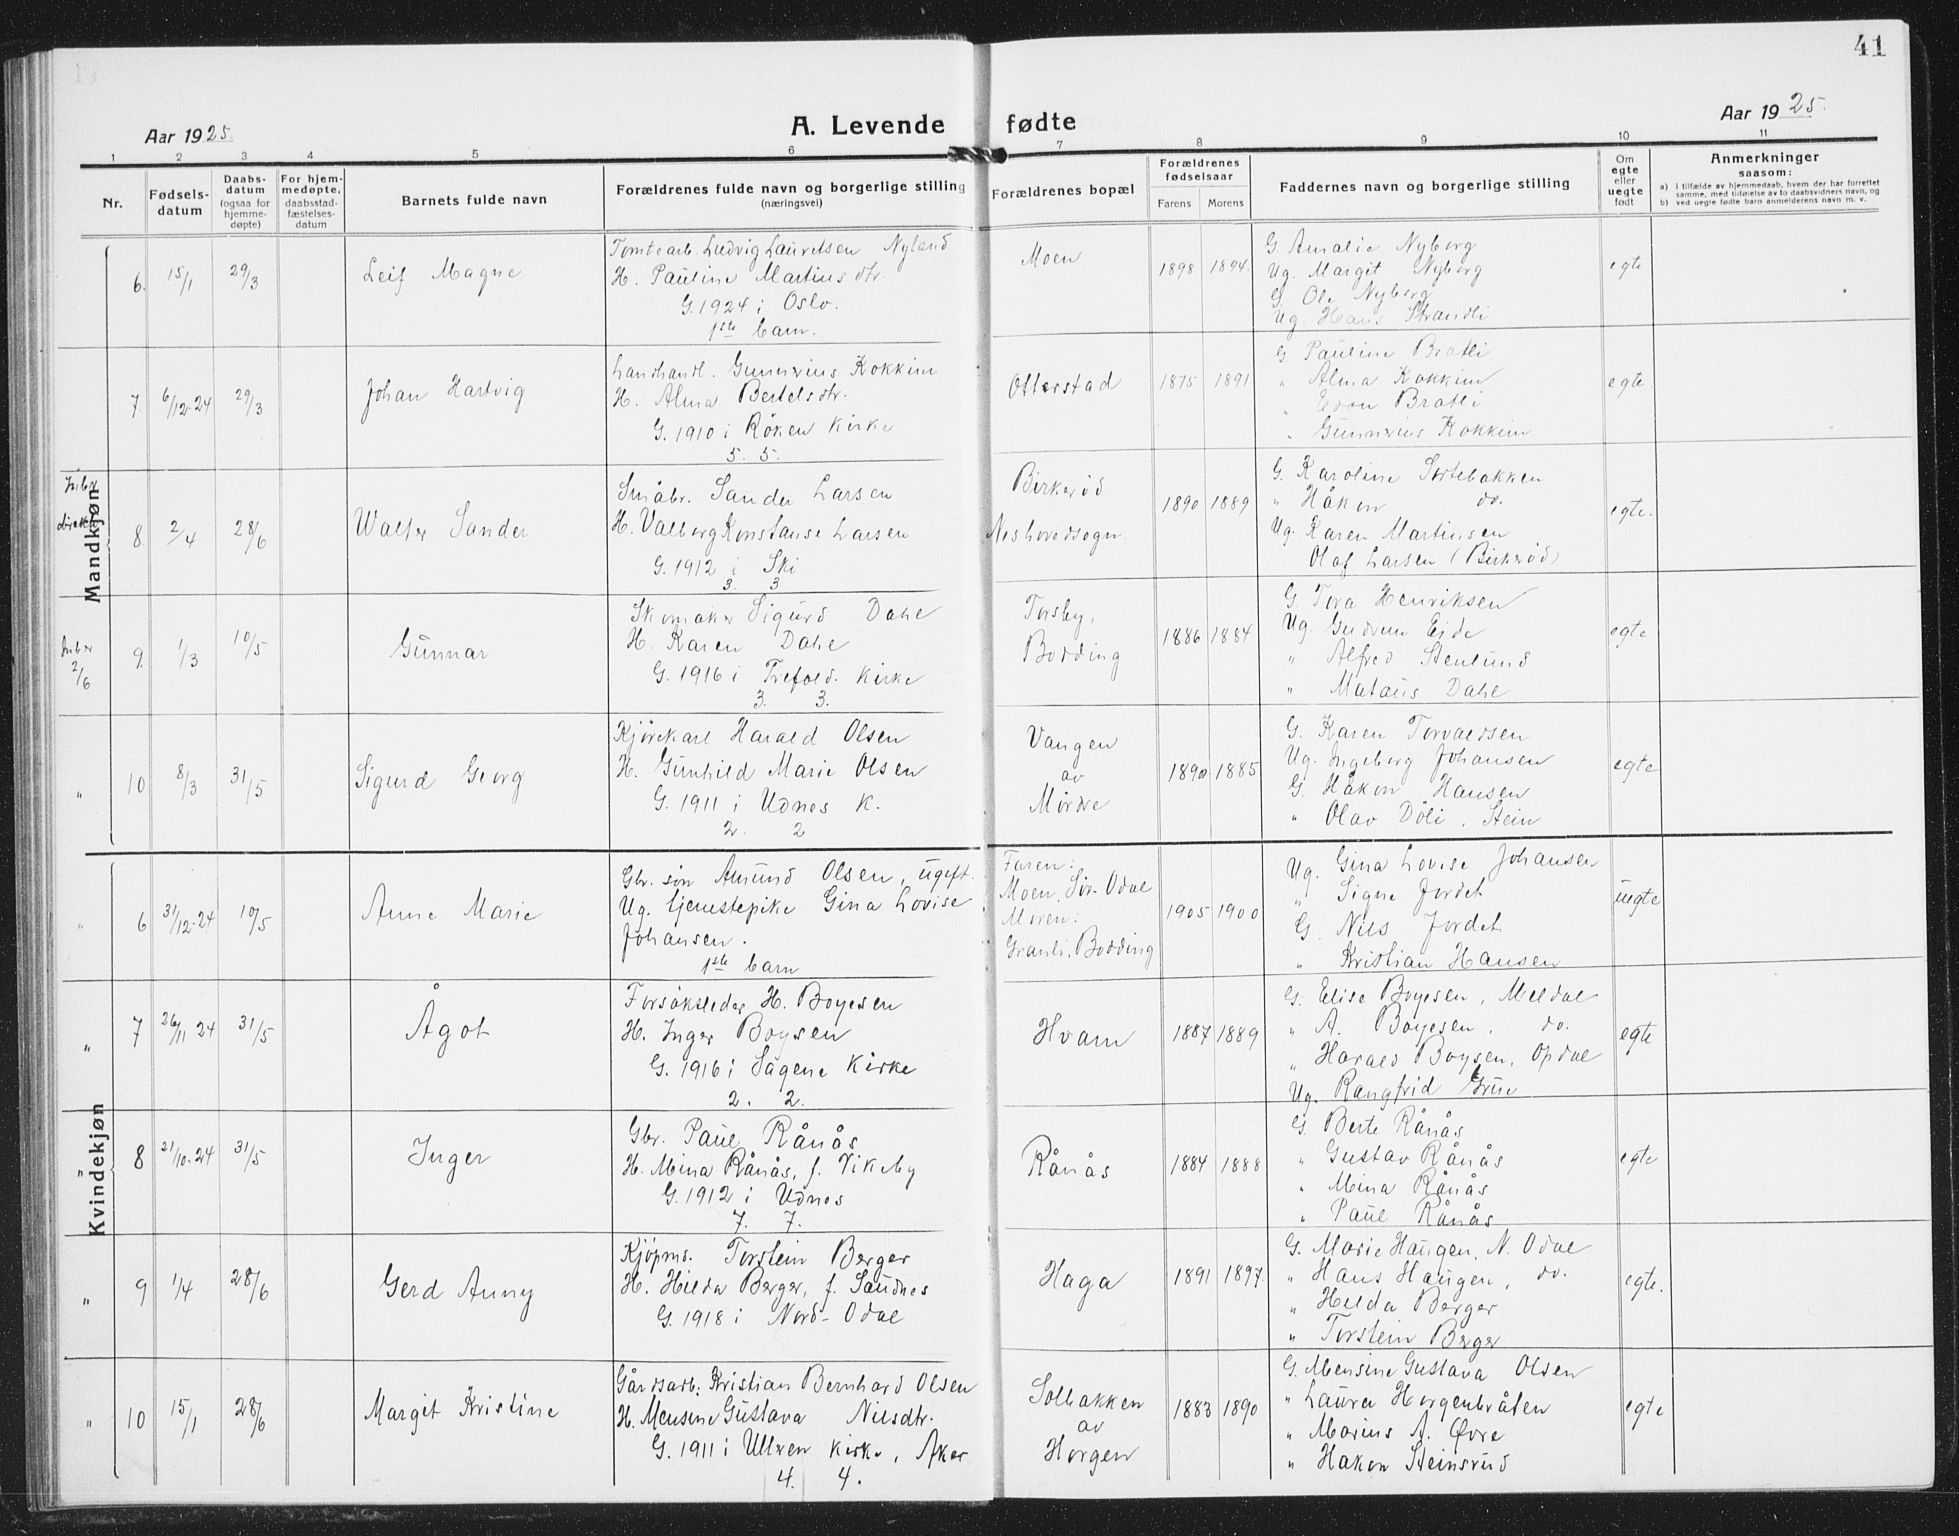 41
Aar 1925.
A. Levende
fødte
Aar 1925.
1 2 3 4 5 6 7 8 9 10 11
Nr.
Fødsels-
datum
Daabs-
datum
(ogsaa for
hjemme-
døpte)
For hjem-
medøpte,
daabsstad-
fæstelses-
datum
Barnets fulde navn
Forældrenes fulde navn og borgerlige stilling
(næringsvei)
Forældrenes bopæl
Forældrenes
fødselsaar
Farens. Morens.
Faddernes navn og borgerlige stilling
Om
egte
eller
uegte
født
Anmerkninger
saasom:
a) i tilfælde av hjemmedaab, hvem der har forrettet
samme, med tilføielse av to daabsvidners navn, og
b) ved uegte fødte barn anmelderens navn m. v.
Mandkjøn
6. 15/1 29/3 Leif Magne
Tomtearb. Ludvig Lauretsen Nyland
H. Pauline Martinsdtr.
G. 1924 i Oslo.
1ste barn.
Moen
1898 1894.
G. Amalie Nyborg
Ug. Margit Nyborg
G. Ole Nyborg
Ug. Hans Strandli
egte
7. 6/12-24 29/3 Johan Hartvig
Landhandl. Gunnerius Kokkim
H. Alma Bertelsdtr.
G. 1910 i Röken Kirke
5. 5.
Otterstad
1875 1891
G. Pauline Bratli
" Alma Kokkim
" Edon Bratli
" Gunnerius Kokkim
egte
8. 2/4 28/6 Walter Sander
Småbr. Sander Larsen
H. Valborg Konstanse Larsen
G. 1912 i Ski
3. 3
Birkeröd
Neshovedsogn.
1890 1889
G. Karoline Sortebakken
" Håkon do.
Ug. Karen Martinsen
Olaf Larsen (Birkeröd)
egte.
2/6
9. 1/3 10/5 Gunnar
Skomaker Sigurd Dahl
H. Karen Dahl
G. 1916 i Trefold. Kirke
3. 3.
Torsby,
Bodding
1886 1884
G. Tora Henriksen
Ug. Gudrun Eide
" Alfred Stenlund
" Mataus Dahl
egte
"
10 8/3 31/5 Sigurd Georg
Kjørekarl Harald Olsen
H. Gunhild Marie Olsen
G. 1911 i Udnes K.
2. 2
Vangen
av
Mørdre
1890 1885
G. Karen Torvaldsen
Ug. Ingeborg Johansen
G. Håkon Hansen
" Olav Döli, Stein
egte
Kvindekjøn
"
6 31/12-24 10/5 Anne Marie
Gbr. søn Amund Olsen, ugift.
Ug. tjenestepike Gina Lovise
Johansen.
1ste barn
Faren:
Moen, Sør-Odal
Moren:
Granli, Bodding
1905 1900
Ug. Gina Lovise Johansen
" Signe Jordet
G. Nils Jordet
" Kristian Hansen
uegte
"
7 26/11 24 31/5 Ågot
Forsöksleder H. Boyesen
H. Inger Boysen
G. 1916 i Sagene Kirke
2. 2.
Hvam
1887 1889
G. Elise Boyesen, Meldal
" A. Boyesen. do.
" Harald Boysen, Opdal
Ug. Rangfrid Grüe
egte
"
8 21/10-24 31/5 Inger
Gbr. Paul Rånås
H. Mina Rånås, f. Vikeby
G. 1912 i Udnes
7. 7.
Rånås
1884 1888
G. Berte Rånås
" Gustav Rånås
" Mina Rånås
" Paul Rånås
egte
"
9 1/4 28/6 Gerd Anny
Kjøpms. Torstein Berger
H. Hilda Berger, f. Sandnes
G. 1918 i Nord-Odal
Haga
1891 1897.
G. Marie Haugen, N. Odal
" Hans Haugen, do.
" Hilda Berger
" Torstein Berger
egte.
"
10 15/1 28/6 Margit Kristine
Gårdsarb: Kristian Bernhard Olsen
H. Mensine Gustava Nilsdtr.
G. 1911 i Ullern kirke, Aker
4. 4.
Solbakken
av
Horgen
1883 1890
G. Mensine Gustava Olsen
" Laura Horgenbråten
" Marius A. Øvre
" Håkon Steinsrud
egte